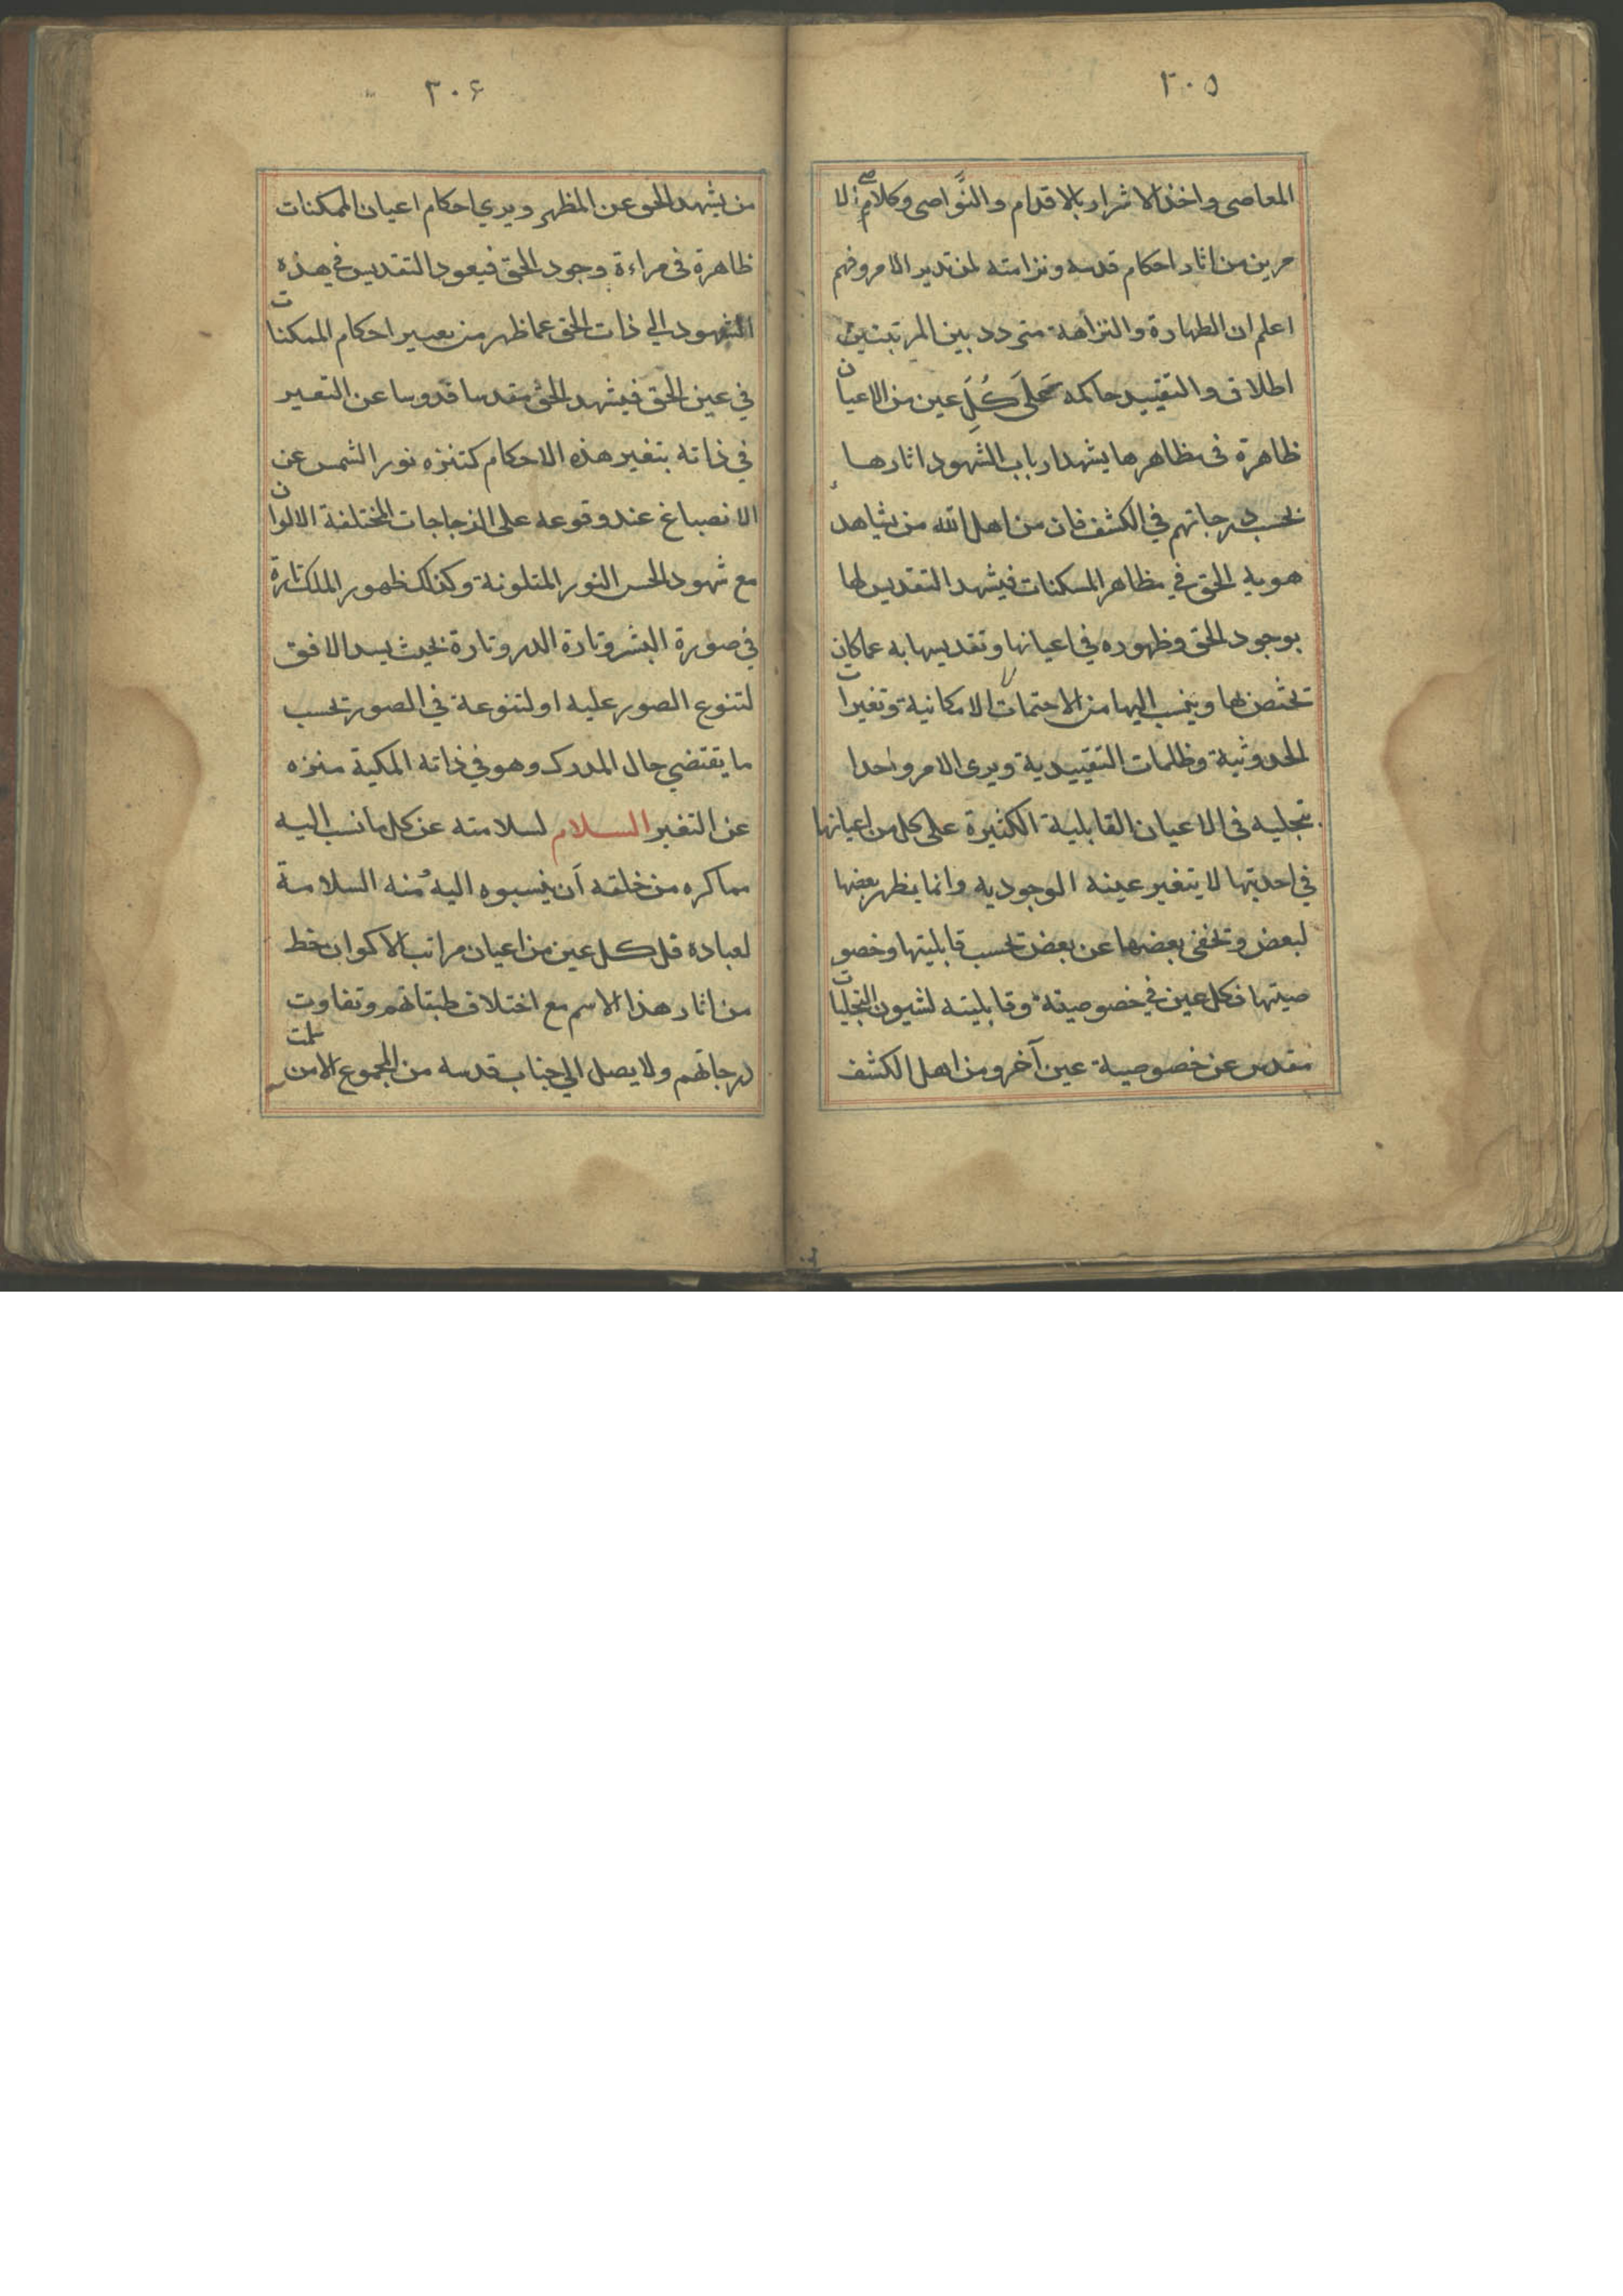 ٣٠٥
المعاصى واخذ الاشرار بالاقدام والنواصى وكلام الا
مرين من اثار احكام قدسه ونزاهته لمن تدبر الامر وفهم
اعلم ان الطهارة والنزاهة متردد بين المرتبتين
اطلاق والتقييد حاكمه على كُلِّ عين من الاعيان
ظاهرة فى مظاهرها يشهد ارباب الشهود اثارها
بحسب درجاتهم في الكشف فان من اهل الله من يشاهد
هويه الحق في مظاهر المسكنات فيشهد التقديس لها
بوجود الحق وظهوره في اعيانها وتقديسها به عما كان
تختص بها وينسب اليها من الاحتمالات الامكانية وتغيرات
الحدوثية وظلمات التقييدية ويرى الامر واحدا
تجليه فى الاعيان القابلية الكثيرة على كل من اعيانها
في احديتها لا يتغير عينه الوجوديه وانما يظهر بعضها
لبعض وتخفى بعضها عن بعض تحسب قابليتها وخصو
صيتها فكل عين في خصوصيته وقابليته لشيون التجليات
مقدس عن خصوصية عين آخر ومن اهل الكشف
٣٠۶
من يشهد الحق عن المظهر ويرى احكام اعيان الممكنات
ظاهرة فى مراءة وجود الحق فيعود التقديس في هذه
الشهود الي ذات الحق عما ظهر من تعيير احكام الممكنات
في عين الحق فيشهد الحق مقدسا قدوسا عن التغير
في ذاته بتغير هذه الاحكام كتنزه نور الشمس عن
الانصباغ عند وقوعه على الزجاجات المختلفة الالوان
مع شهود الحس النور المتلونة وكذلك ظهور الملك تارة
في صورة البشر وتارة الدر وتارة بحيث يسد الافق
لتنوع الصور عليه او لتنوعة في الصور تحسب
ما يقتضي حال المدرك وهو في ذاته الملكية منزه
عن التغير السلام لسلامته عن كل ما نسب اليه
مما كره من خلقه أن ينسبوه اليه منه السلامة
لعباده فل كل عين من اعيان مراتب الاكوان خط
من اثار هذا الاسم مع اختلاف طبقاتهم وتفاوت
درجاتهم ولا يصل الي جناب قدسه من المجموع الا من سلمت